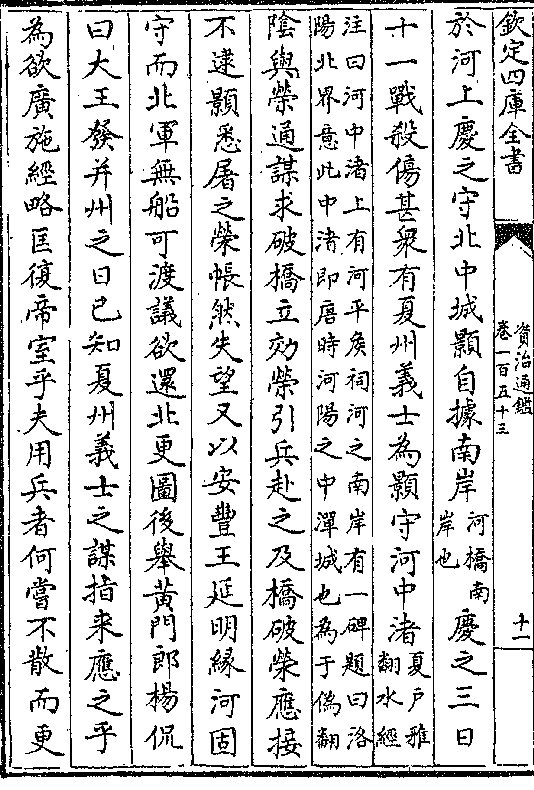 欽定四庫全書 資治通鑑 卷一百五十三 十一
於河上慶之守北中城顥自據南岸河橋南岸也慶之三日
十一戰殺傷甚衆有夏州義士為顥守河中渚夏户雅翻水經
注曰河中渚上有河平侯祠河之南岸有一碑題曰洛
陽北界意此中渚即唐時河陽之中潬城也為于偽翻
陰與榮通謀求破橋立効榮引兵赴之及橋破榮應接
不逮顥悉屠之榮悵然失望又以安豐王延明緣河固
守而北軍無船可渡議欲還北更圖後舉黃門郎楊侃
曰大王發并州之日已知夏州義士之謀指来應之乎
為欲廣施經略匡復帝室乎夫用兵者何嘗不散而更